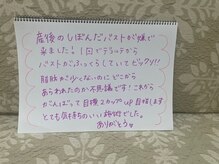 産後のしぼんだバストが嫌で
来ました！1回でデコルテから
バストがふっくらしていてビックリ!!
脂肪が少くないのにどこから
あらわれたのか不思議です！これから
がんばって目標2カップUP目指します
とても気持ちのいい施術でした。
ありがとう